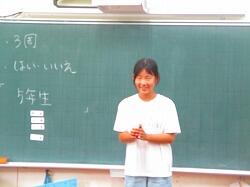 ・3回
・はい・いいえ
5年生